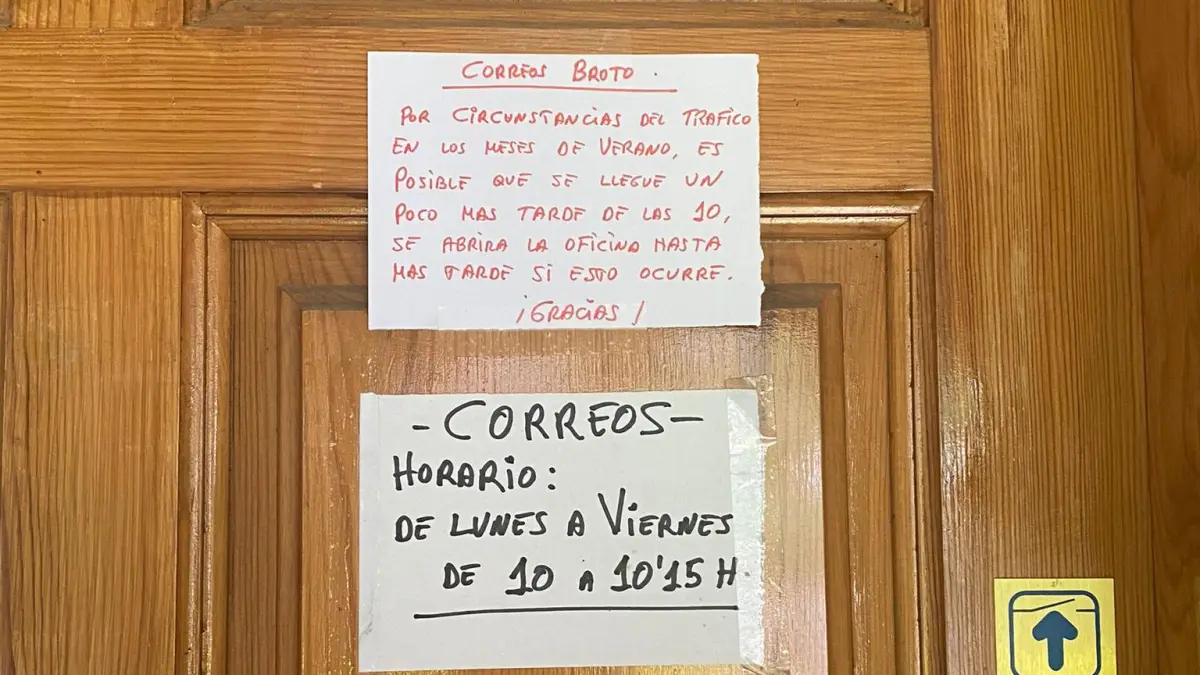 CORREOS BROTO.
POR CIRCUNSTANCIAS DEL TRAFICO
EN LOS MESES DE VERANO, ES
POSIBLE QUE SE LLEGUE UN
POCO MAS TARDE DE LAS 10,
SE ABRIRA LA OFICINA HASTA
MAS TARDE SI ESTO OCURRE.
¡GRACIAS!
-CORREOS-
HORARIO:
DE LUNES A VIERNES
DE 10 A 10'15 H.